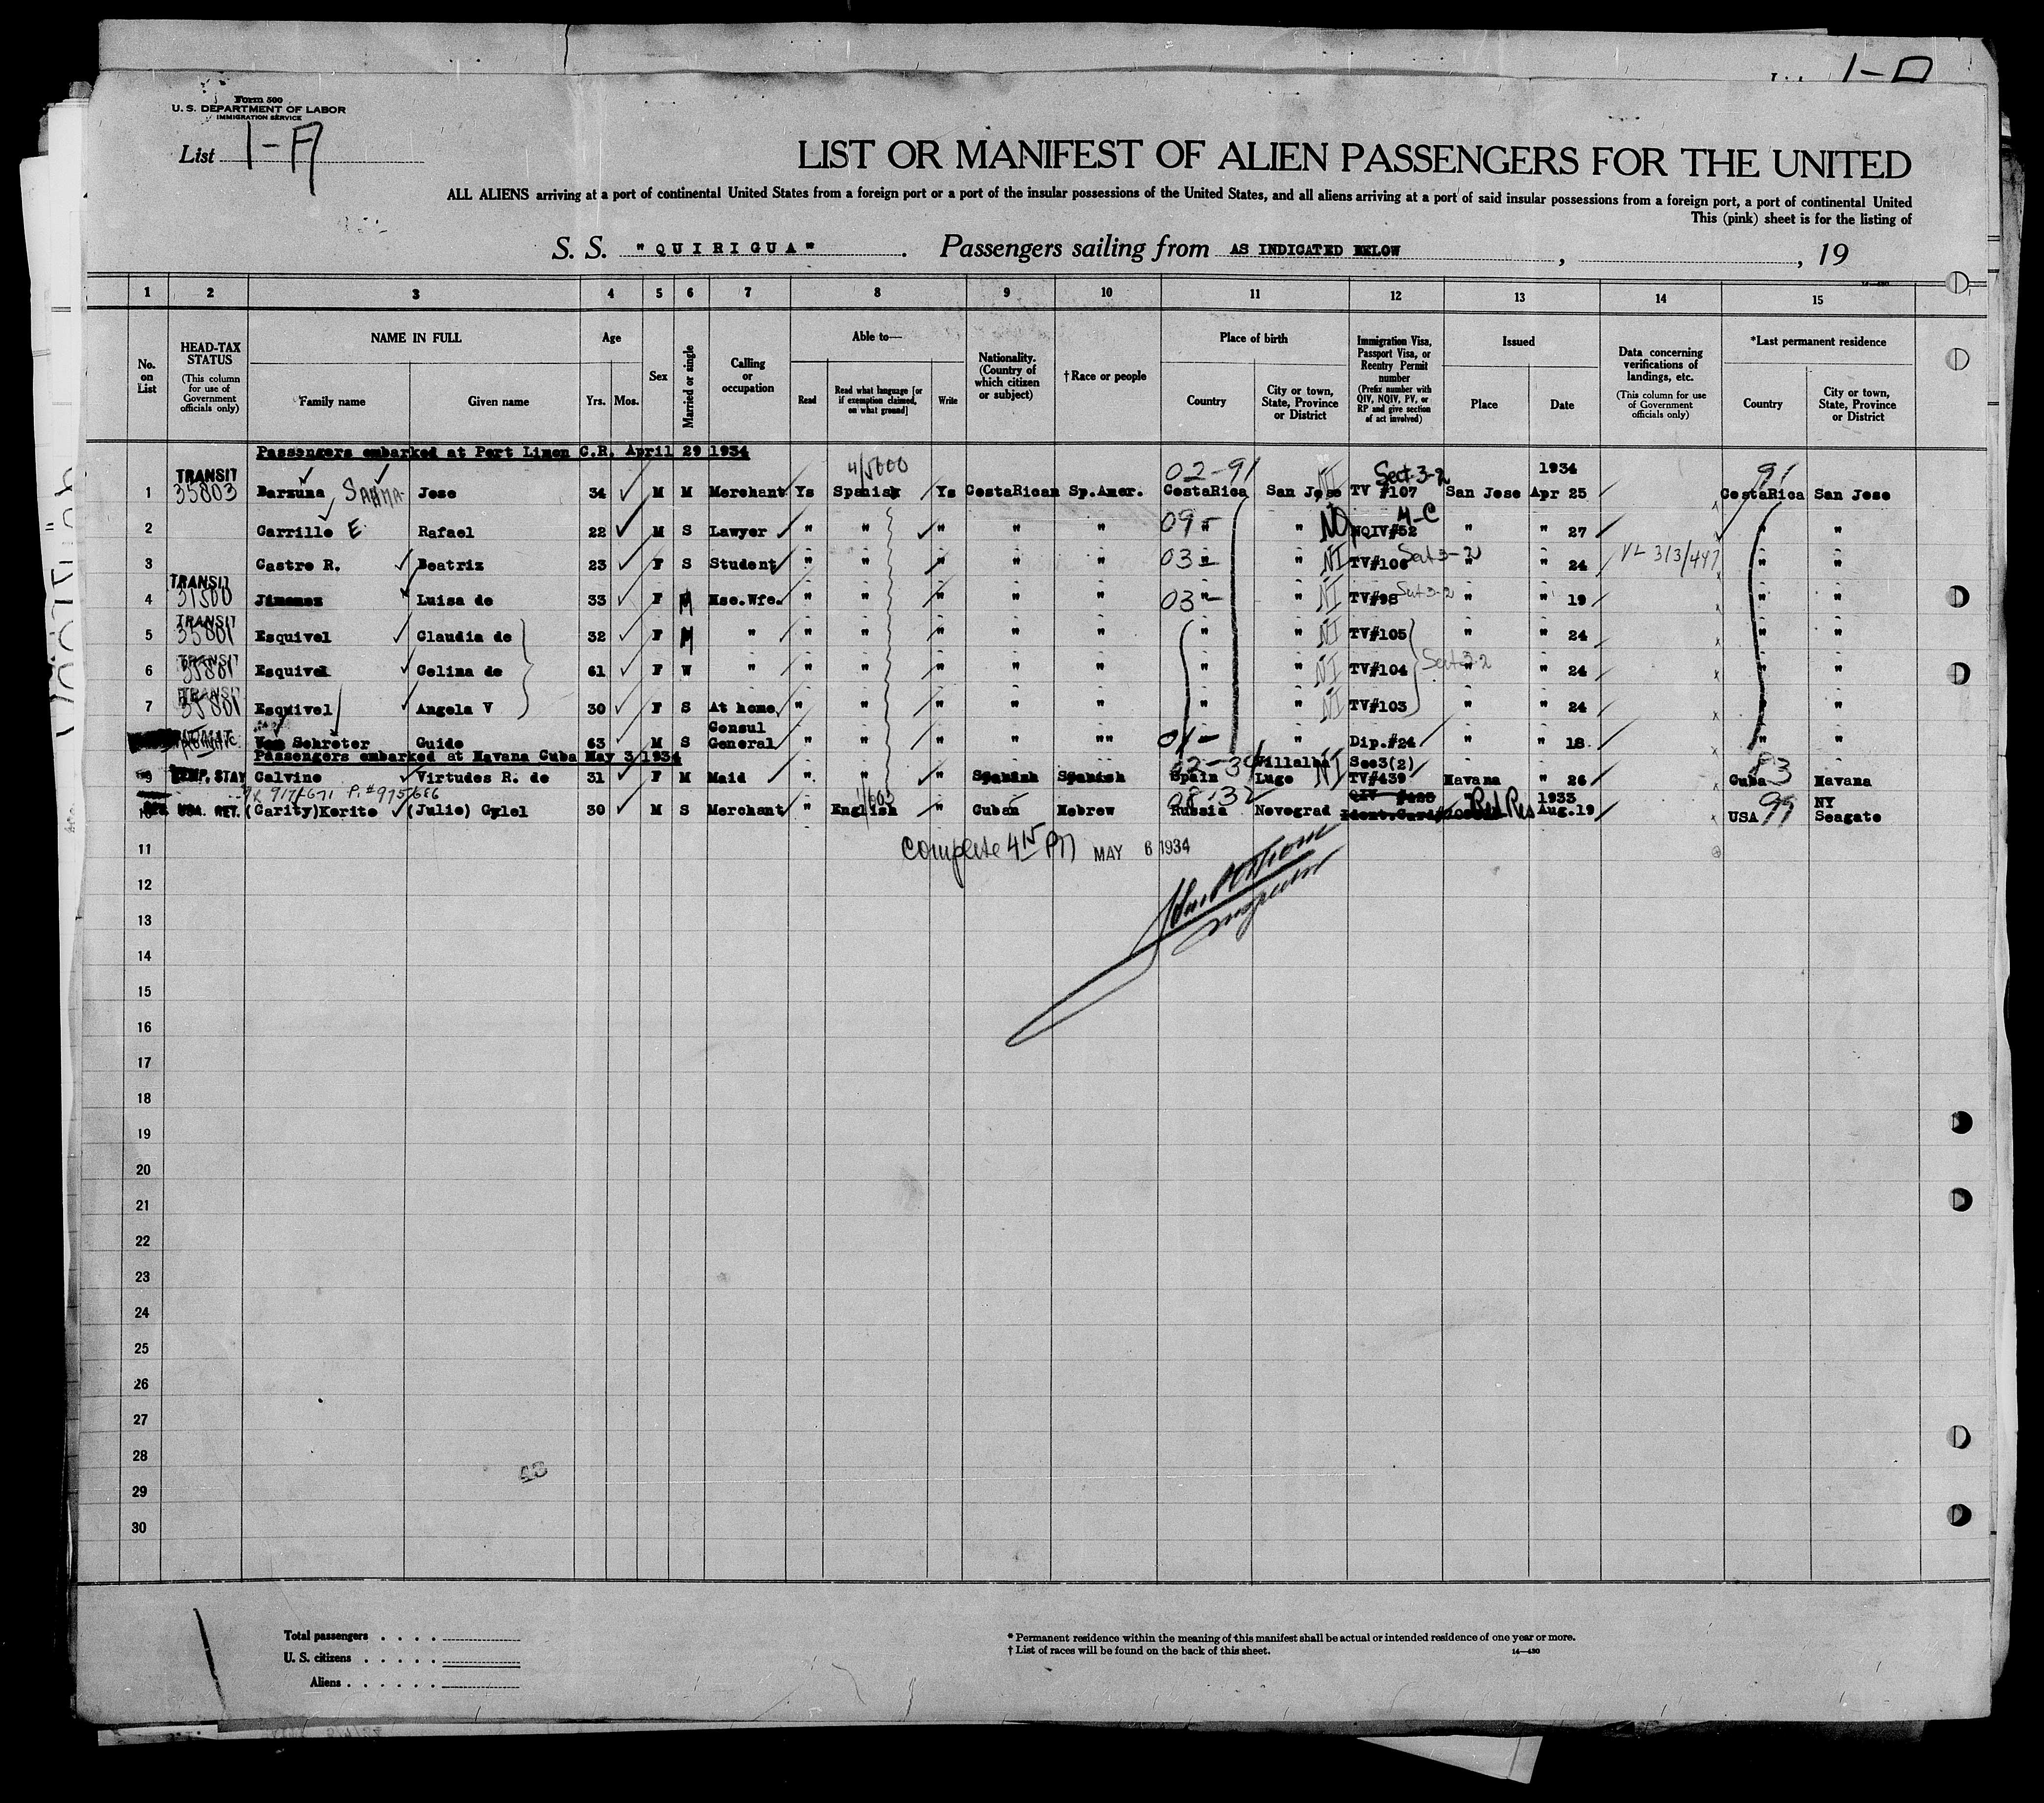 1-D
Form 500
U. S. DEPARTMENT OF LABOR
IMMIGRATION SERVICE
List 1-A
LIST OR MANIFEST OF ALIEN PASSENGERS FOR THE UNITED
ALL ALIENS arriving at a port of continental United States from a foreign port or a port of the insular possessions of the United States, and all aliens arriving at a port of said insular possessions from a foreign port, a port of continental United
This (pink) sheet is for the listing of
S. S. "QUIRIGUA". Passengers sailing from AS INDICATED BELOW, , 19
1 2 3 4 5 6 7 8 9 10 11 12 13 14 15
No. on List
HEAD-TAX STATUS (This column for use of Government officials only)
NAME IN FULL Family name Given name
Age Yrs. Mos.
Sex
Married or single
Calling or occupation
Able to— Read Read what language [or if exemption claimed, on what ground] Write
Nationality. (Country of which citizen or subject)
†Race or people
Place of birth Country City or town, State, Province or District
Immigration Visa, Passport Visa, or Reentry Permit number (Prefix number with QIV, NQIV, PV, or RP and give section of act involved)
Issued Place Date
Data concerning verifications of landings, etc. (This column for use of Government officials only)
*Last permanent residence Country City or town, State, Province or District
Passengers embarked at Port Limon C.R. April 29 1934
4/5600 02-91 Sect 3-2 1934 91
1 TRANSIT 35803 Barzuna Jose 34 M M Merchant Ys Spanish Ys CostaRican Sp.Amer. CostaRica San Jose TV #107 San Jose Apr 25 CostaRica San Jose
2 Carrillo E. Rafael 22 M S Lawyer " " " " " 09- " " NQIV#52 4-C " " 27 " "
3 Castro R. Beatriz 23 F S Student " " " " " 03- " " NI TV#106 Sect 3-2 " " 24 VL 313/447 " "
4 TRANSIT Jimenez Luisa de 33 F M Hse.Wfe. " " " " " 03- " " NI TV#98 Sect 3-2 " " 19 " "
5 TRANSIT 35801 Esquivel Claudia de 32 F M " " " " " " " " NI TV#105 " " 24 " "
6 TRANSIT 35801 Esquivel Celina de 61 F W " " " " " " " " NI TV#104 Sect 3-2 " " 24 " "
7 TRANSIT 35801 Esquivel Angela V 30 F S At home " " " " " " " NI TV#103 " " 24 " "
Von Schroter Guido 63 M S Consul General " " " " "" 01- " " Dip.#24 " " 18 " "
Passengers embarked at Havana Cuba May 3 1934
9 TEMP. STAY Calvino Virtudes R. de 31 F M Maid " " " Spanish Spanish Spain Villalba Lugo NI Sec3(2) TV#439 Havana " 26 Cuba 83 Havana
10 USA. RET. (Garity)Kerito (Julio) Gylel 30 M S Merchant " English " Cuban Hebrew Russia Novograd Ident.Card Red Res 1933 Aug.19 USA 99 NY Seagate
11 Complete 4 15 PM MAY 6 1934
12
13 Inspector
14
15
16
17
18
19
20
21
22
23
24
25
26
27
28
29
30
Total passengers . . . .
U. S. citizens . . . . .
Aliens . . . . . .
* Permanent residence within the meaning of this manifest shall be actual or intended residence of one year or more.
† List of races will be found on the back of this sheet. 14—430